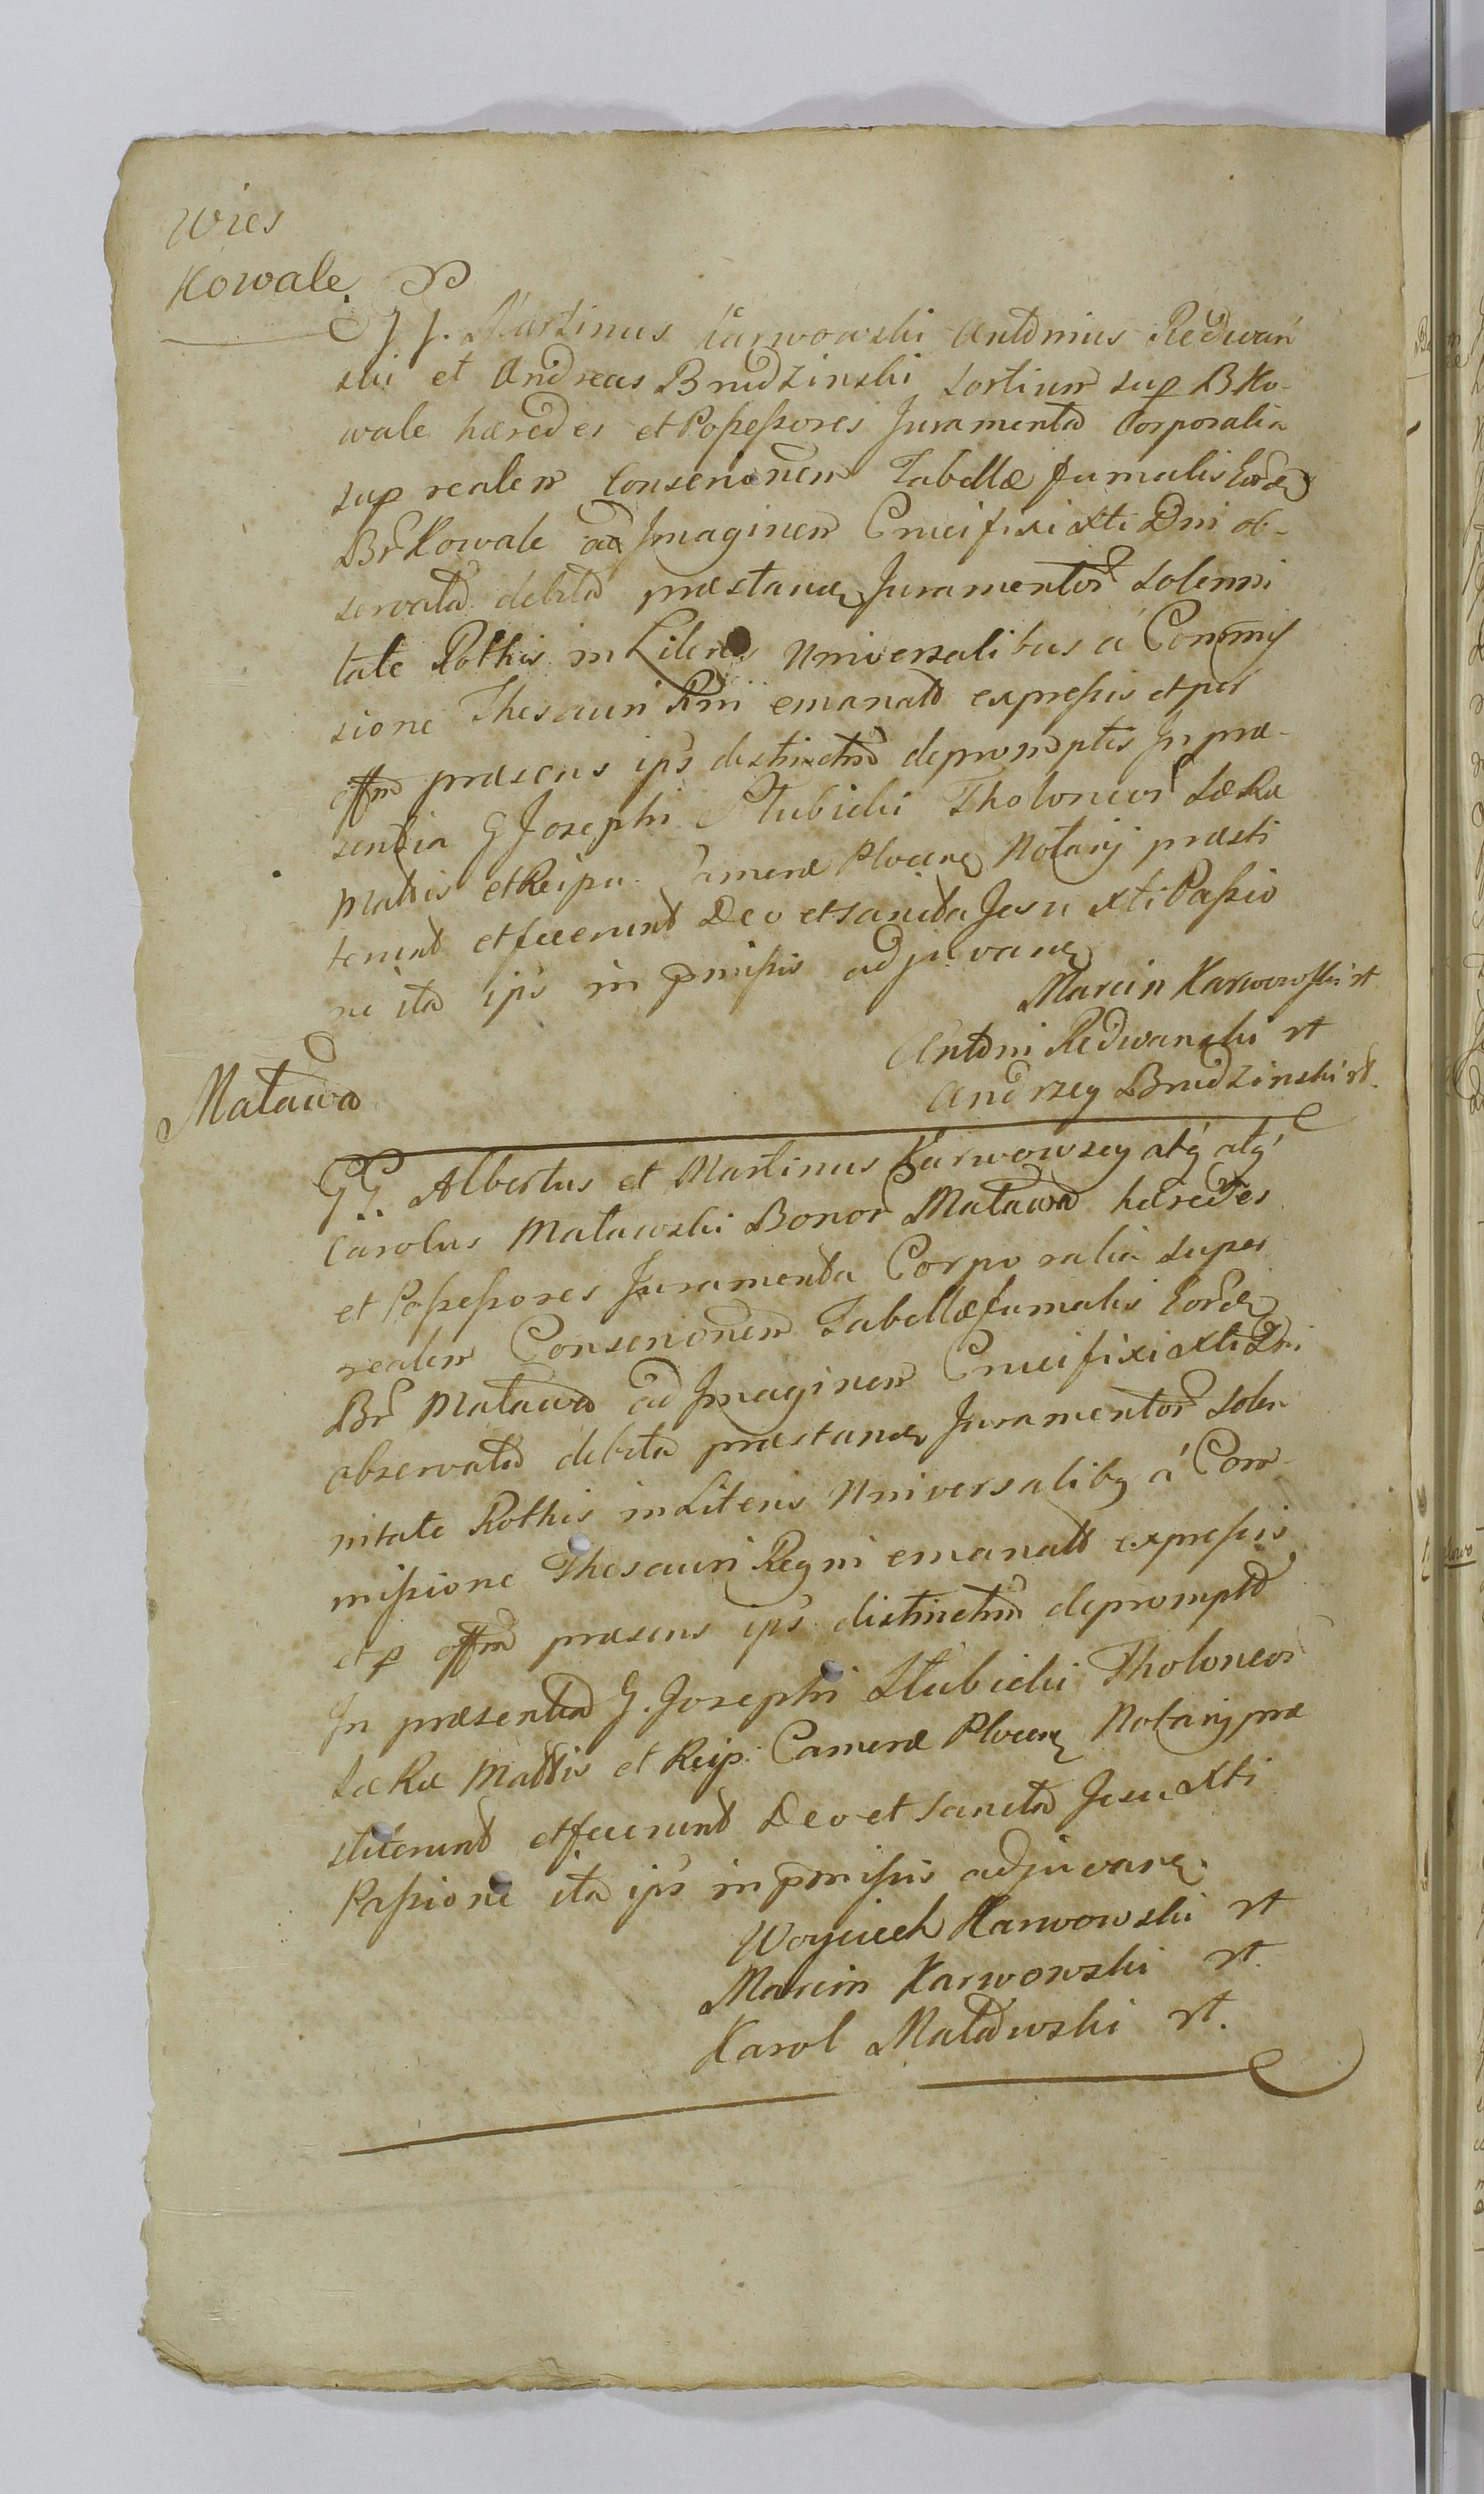 Wies
Kowale
GG. Martinus Karwowski Antonius Redwań
ski et Andreas Brudzinski sortium sup B Ko-
wale hæredes et Possessores Juramenta Corporalia
sup realem Conserionem Tabellæ fumalis Eord
Br Kowale ad Imaginem Crucifixi Xti Dni ob-
servata debita præstan Juramentor Solenni
tate Rothis in Literis Universalibus á Commis
sione Thesauri Rni emanatt expressis et per
offm præsens ips distinctim depromptis In præ-
sentia G Josephi Słubicki Tholoneor SæRæ
Mattis et Reipu Cameræ Plocen Notarij præsti
terunt et fecerunt Deo et sancta Jesu Xti Passio
ne ita ips in pmissis adjuvan
Marcin Karwowski rt
Antoni Redwanski rt
Andrzey Brudzinski rt.
Matawa
GG. Albertus et Martinus Karwowscy atq atq
Carolus Matawski Bonor Matawa hæredes
et Possessores Juramenta Corporalia super
realem Conserionem Tabellæ fumalis Eord
Br Matawa ad Imaginem Crucifixi Xti Dni
observata debita præstan Juramentor Solen
nitate Rothis in Literis Universalibq á Com-
missione Thesauri Regni emanatt expressis
et p offm præsens ips distinctim depromptt
In præsentia G. Josephi Słubicki Tholoneor
SæRæ Mattis et Reip: Cameræ Plocen Notarij præ
stiterunt et fecerunt Deo et Sancta Jesu Xti
Passione ita ips in pmissis adjuvan.
Woyciech Karwowski rt
Marcin Karwowski rt.
Karol Matawski rt.